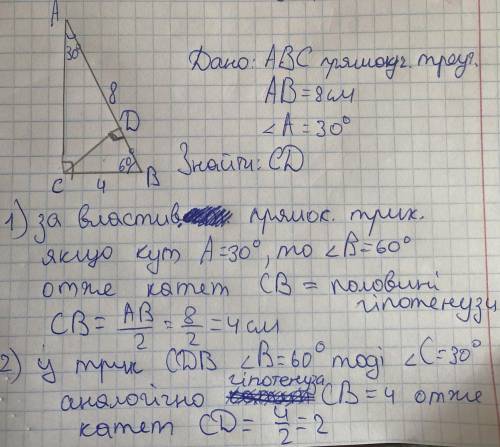 A
30°
8
D
60°
C
4
B
Дано: ABC прямокут. треуг.
AB = 8 см
∠A = 30°
Знайти: CD
1) за властив. прямок. трик.
якщо кут A = 30°, то ∠B = 60°
отже катет CB = половині гіпотенузи
CB = AB/2 = 8/2 = 4 см
2) У трик CDB ∠B = 60° тоді ∠C = 30°
аналогічно гіпотенуза CB = 4 отже
катет CD = 4/2 = 2